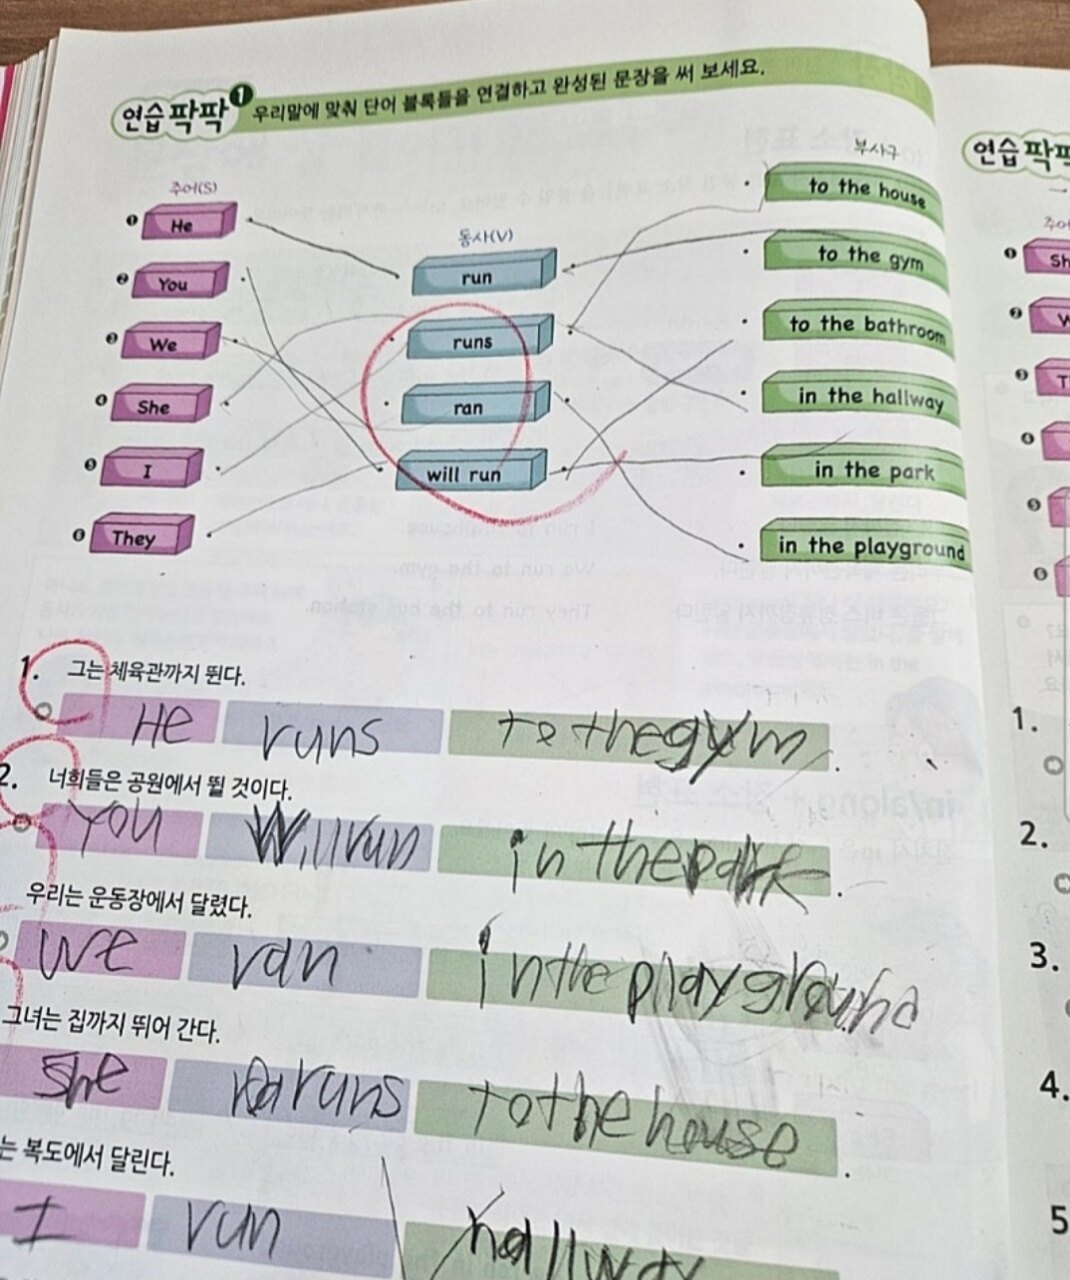 연습팍팍 1 우리말에 맞춰 단어 블록들을 연결하고 완성된 문장을 써 보세요.
주어(S)
동사(V)
부사구
❶ He
❷ You
❸ We
❹ She
❺ I
❻ They
run
runs
ran
will run
to the house
to the gym
to the bathroom
in the hallway
in the park
in the playground
1. 그는 체육관까지 뛴다.
He runs to the gym.
2. 너희들은 공원에서 뛸 것이다.
You Will run in the park.
우리는 운동장에서 달렸다.
We ran in the playground
그녀는 집까지 뛰어 간다.
She runs to the house.
는 복도에서 달린다.
I run hallway
연습팍
❶ Sh
❷ W
❸ T
❹
❺
❻
1.
2.
3.
4.
5